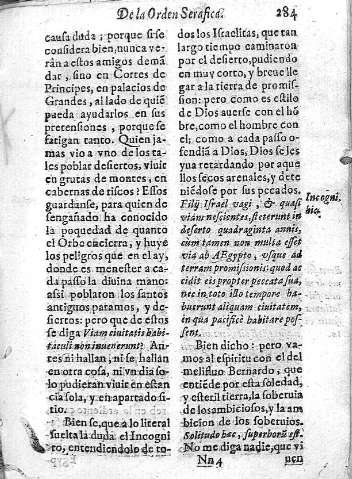 De la Orden Serafica. 284
causa duda; porque si se
considera bien, nunca ve-
rán a estos amigos demã
dar, sino en Cortes de
Principes, en palacios de
Grandes, al lado de quiẽ
pueda ayudarlos en sus
pretensiones, porque se
fatigan tanto. Quien ja-
mas vio a vno de los ta-
les poblar desiertos, viuir
en grutas de montes, en
cabernas de riscos? Essos
guardanse, para quien de-
sengañado ha conocido
la poquedad de quanto
el Orbe encierra, y huye
los peligros que en el ay,
donde es menester a ca-
da passo la diuina mano:
assi poblaron los santos
antiguos paramos, y de-
siertos: pero que de estos
se diga Viam ciuitatis habi-
taculi non inuenerunt? An-
tes ni hallan, ni se hallan
en otra cosa, ni vn dia so-
lo pudieran viuir en estan
cia sola, y en apartado si-
tio.
Bien se, que a lo literal
suelta la duda el Incogni
to, entendiendolo de to-
dos los Israelitas, que tan
largo tiempo caminaron
por el desierto, pudiendo
en muy corto, y breue lle
gar a la tierra de promis-
sion: pero como es estilo
de Dios auerse con el hõ
bre, como el hombre con
el; como a cada passo o-
fendiã a Dios, Dios se les
yua retardando por aque
llos secos arenales, y dete
niẽdose por sus pecados.
Filij Israel vagi, & quasi
viam nescientes, steterunt in
deserto quadraginta annis,
cum tamen non multa esset
via ab AEgypto, vsque ad
terram promissionis: quod ac
cidit eis propter peccata sua,
nec in toto isto tempore ha-
buerunt aliquam ciuitatem,
in qua pacificè habitare pos-
sent.
Incogni.
hic.
Bien dicho: pero va-
mos al espiritu con el del
melifluo Bernardo, que
entiẽde por esta soledad,
y esteril tierra, la soberuia
de los ambiciosos, y la am
bicion de los soberuios.
Solitudo hæc, superborũ est.
No me diga nadie, que vi
Nn 4 uen